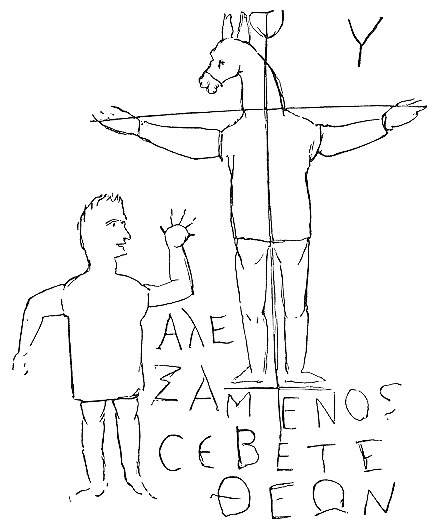 Υ
ΑΛΕ
ΞΑΜΕΝΟς
ϹΕΒΕΤΕ
ΘΕΩΝ